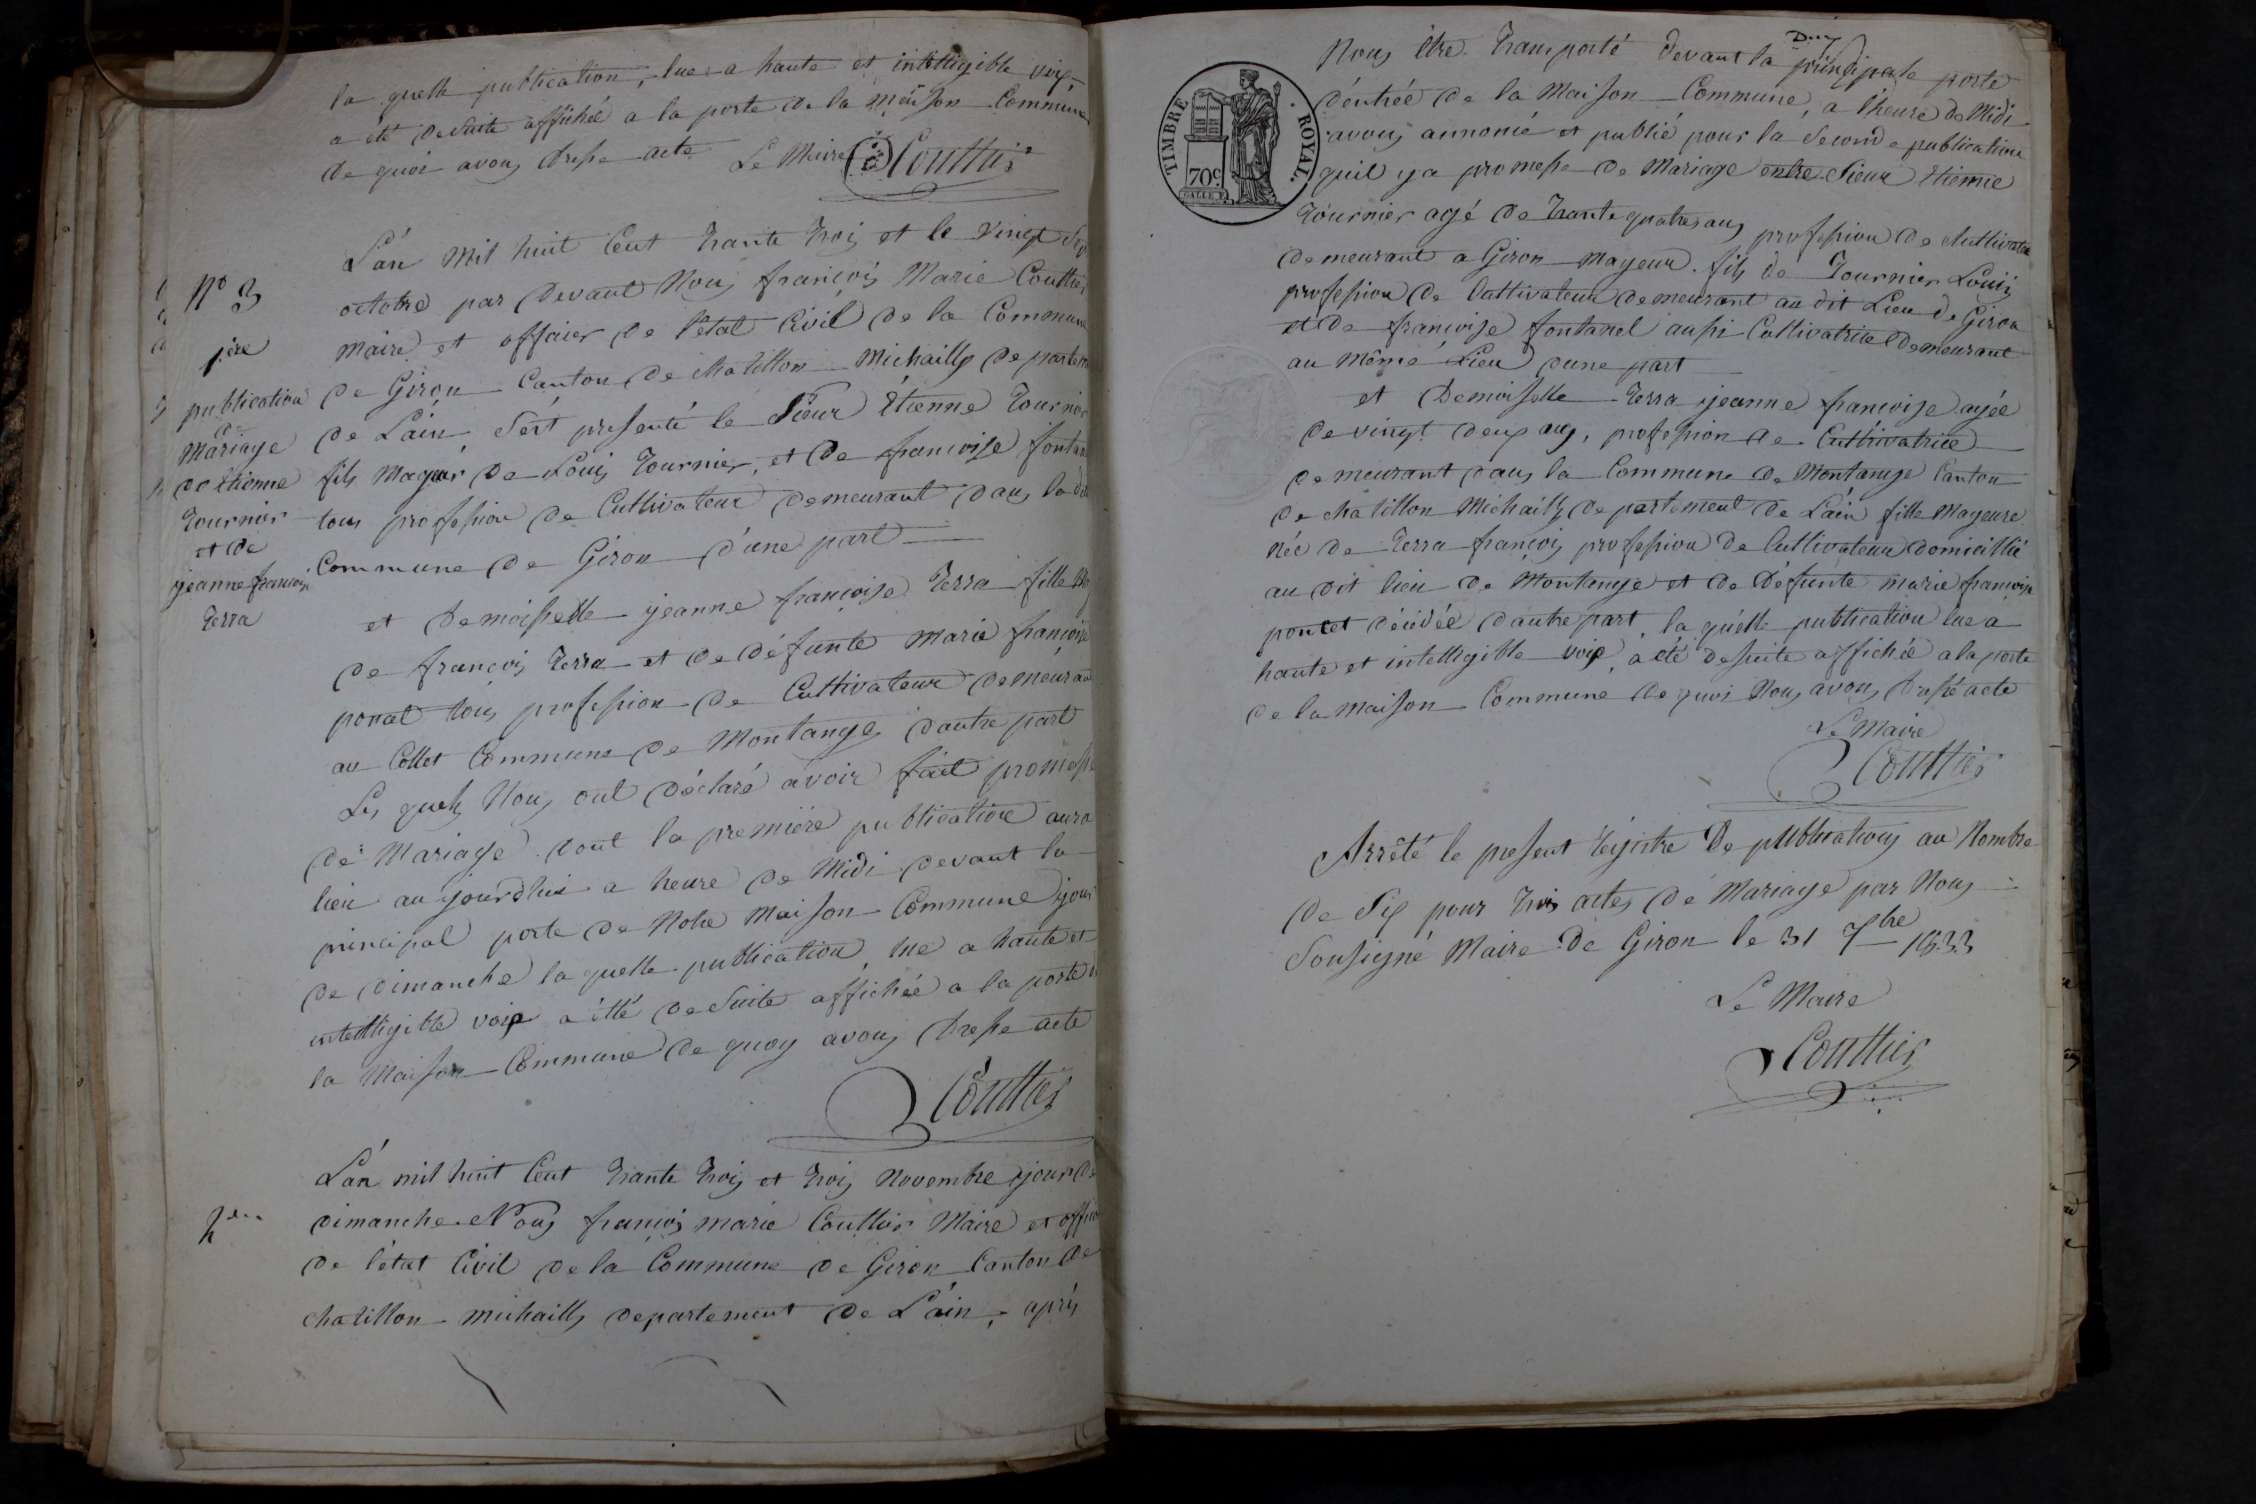 la quelle publication, lue a haute et intelligible voix
a été de suite affiché a la porte de la Maison Commune
de quoi avons dresse acte. Le Maire Couttier
L'an mil huit Cent trante trois et le vingt Sept
octobre par devant Nous françois Marie Couttier
maire et officier de l'état Civil de la Commune
de Giron Canton de chatillon Michaille departement
de Lain S'est presenté le Sieur Étienne Tournier
fils Mageur de Louis Tournier, et de françoise fontan
tous profession de Cultivateur demeurant dans la dite
Commune de Giron d'une part
et Demoiselle jeanne françoise Terra fille
de françois Terra et de défunte Marie françoise
poncet tous profession de Cultivateur demeurant
au Collet Commune de Montange d'autre part
Les quels Nous ont déclaré avoir fait promesse
de Mariage dont la première publication aura
lieu aujourdhui a heure de Midi devant la
principal porte de Notre Maison Commune jour
de dimanche la quelle publication lue a haute et
intelligible voix a étté de Suite affichée a la porte de
la Maison Commune de quoy avons dresse acte
Couttier
N° 3
1ère
publication
de
Mariage
de Etienne
Tournier
et de
jeanne françoise
Terra
L'an mil huit Cent trante trois et trois Novembre jour de
dimanche Nous françois marie Couttier Maire et officier
de l'état Civil de la Commune de Giron Canton de
chatillon michaille departement de L'ain, après
2me
TIMBRE ROYAL.
70c
Nous être transporté devant la principale porte
d'entrée de la Maison Commune, a l'heure de Midi
avons annoncé et publié pour la Seconde publication
quil y a promesse de Mariage entre Sieur Etienne
Tournier agé de trante quatre ans profession de Cultivateur
demeurant a Giron Mayeur fils de Tournier Louis
profession de Cultivateur demeurant au dit Lieu de Giron
et de françoise fontanel aussi Cultivatrice demeurant
au même Lieu dune part
et Demoiselle Terra jeanne françoise agée
de vingt deux ans, profession de Cultivatrice
demeurant dans la Commune de Montange Canton
de chatillon Michaille departement de L'ain fille Mayeure
née de Terra françois profession de Cultivateur domicillié
au dit lieu de Montange et de défunte marie françoise
poncet décédée dautre part, la quelle publication lue a
haute et intelligible voix, a été desuite affichée a la porte
de la Maison Commune de quoi Nous avons dressé acte
Le Maire
Couttier
Arrêté le present registre De publications au Nombre
de Six pour trois actes de Mariage par Nous
Sousigné Maire de Giron le 31 Xbre 1833
Le Maire
Couttier